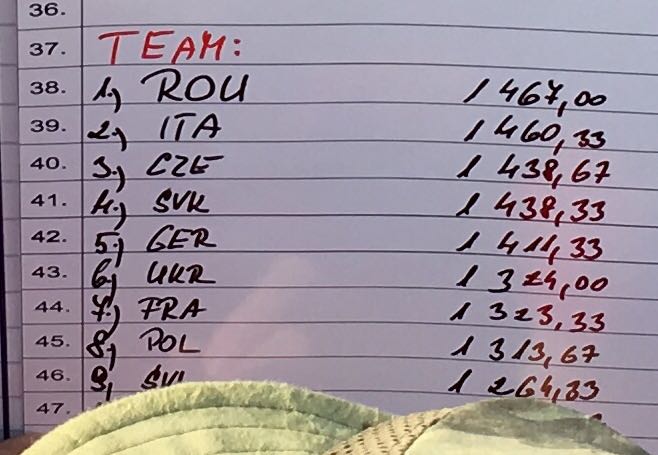 36.
37. TEAM:
38. 1.) ROU 1 467,00
39. 2.) ITA 1 460,33
40. 3.) CZE 1 438,67
41. 4.) SVK 1 438,33
42. 5.) GER 1 411,33
43. 6.) UKR 1 324,00
44. 7.) FRA 1 323,33
45. 8.) POL 1 313,67
46. 9.) 1 264,33
47.